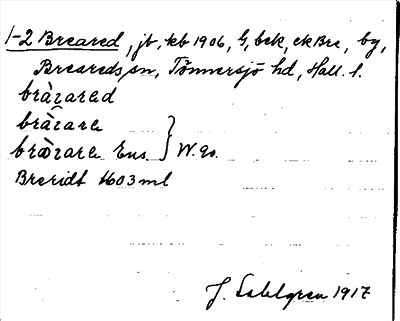 1-2 Breared, jb, kb 1906, G, bek, ekBre, by,
Breareds sn, Tönnersjö hd, Hall. l.
bràrarəd
bràrarə
bràrarə Ens. } W. 90.
Breridt 1603 ml
J. Sahlgren 1917